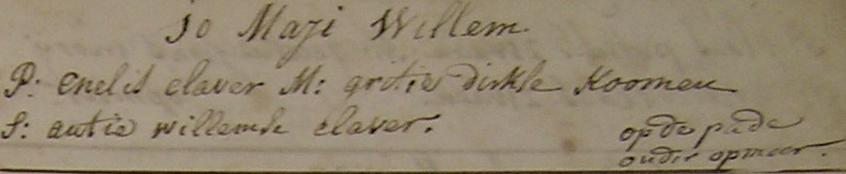 10 Maji Willem
P: enelis claver M: gritie dirkse Koomen
S: antie willemse claver.
op de pade
onder opmeer.